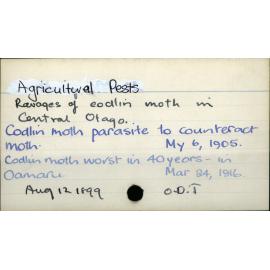 Agricultural Pests
Ravages of codlin moth in
Central Otago.
Codlin moth parasite to counteract
moth. My 6, 1905.
Codlin moth worst in 40 years - in
Oamaru Mar 24, 1916.
Aug 12 1899 O.D.T